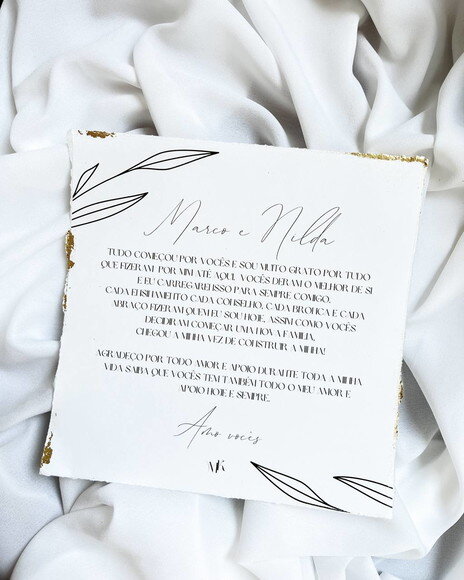 Marco e Nilda
TUDO COMEÇOU POR VOCÊS E SOU MUITO GRATO POR TUDO
QUE FIZERAM POR MIM ATÉ AQUI. VOCÊS DERAM O MELHOR DE SI
E EU CARREGAREI ISSO PARA SEMPRE COMIGO.
CADA ENSINAMENTO CADA CONSELHO, CADA BRONCA E CADA
ABRAÇO FIZERAM QUEM EU SOU HOJE, ASSIM COMO VOCÊS
DECIDIRAM COMEÇAR UMA NOVA FAMÍLIA,
CHEGOU A MINHA VEZ DE CONSTRUIR A MINHA!
AGRADEÇO POR TODO AMOR E APOIO DURANTE TODA A MINHA
VIDA SAIBA QUE VOCÊS TEM TAMBÉM TODO O MEU AMOR E
APOIO HOJE E SEMPRE.
Amo vocês